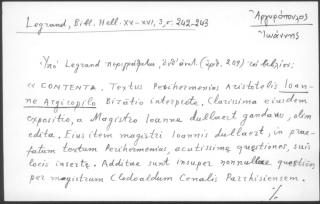 Legrand, Bibl. Hell. XV-XVI, 3, σ. 242-243
Ἀργυρόπουλος
Ἰωάννης
Ὑπὸ Legrand περιγράφεται, ἐνθ' ἀνωτ. (ἀρ. 209) τὸ βιβλίον:
« CONTENTA. Textus Perihermenias Aristotelis Ioan-
ne Argiropilo Bizătio interprete. Clarissima eiusdem
expositio, a Magistro Ioanne dullaert gandavo, olim
edita. Eiusitem magistri Ioannis dullaert, in prae-
fatum textum Perihermenias, acutissimę quęstiones, suis
locis insertę. Additae sunt insuper nonnullae quęstiões
per magistrum Clodoaldum Cenalis Parrhisiensem.
./.